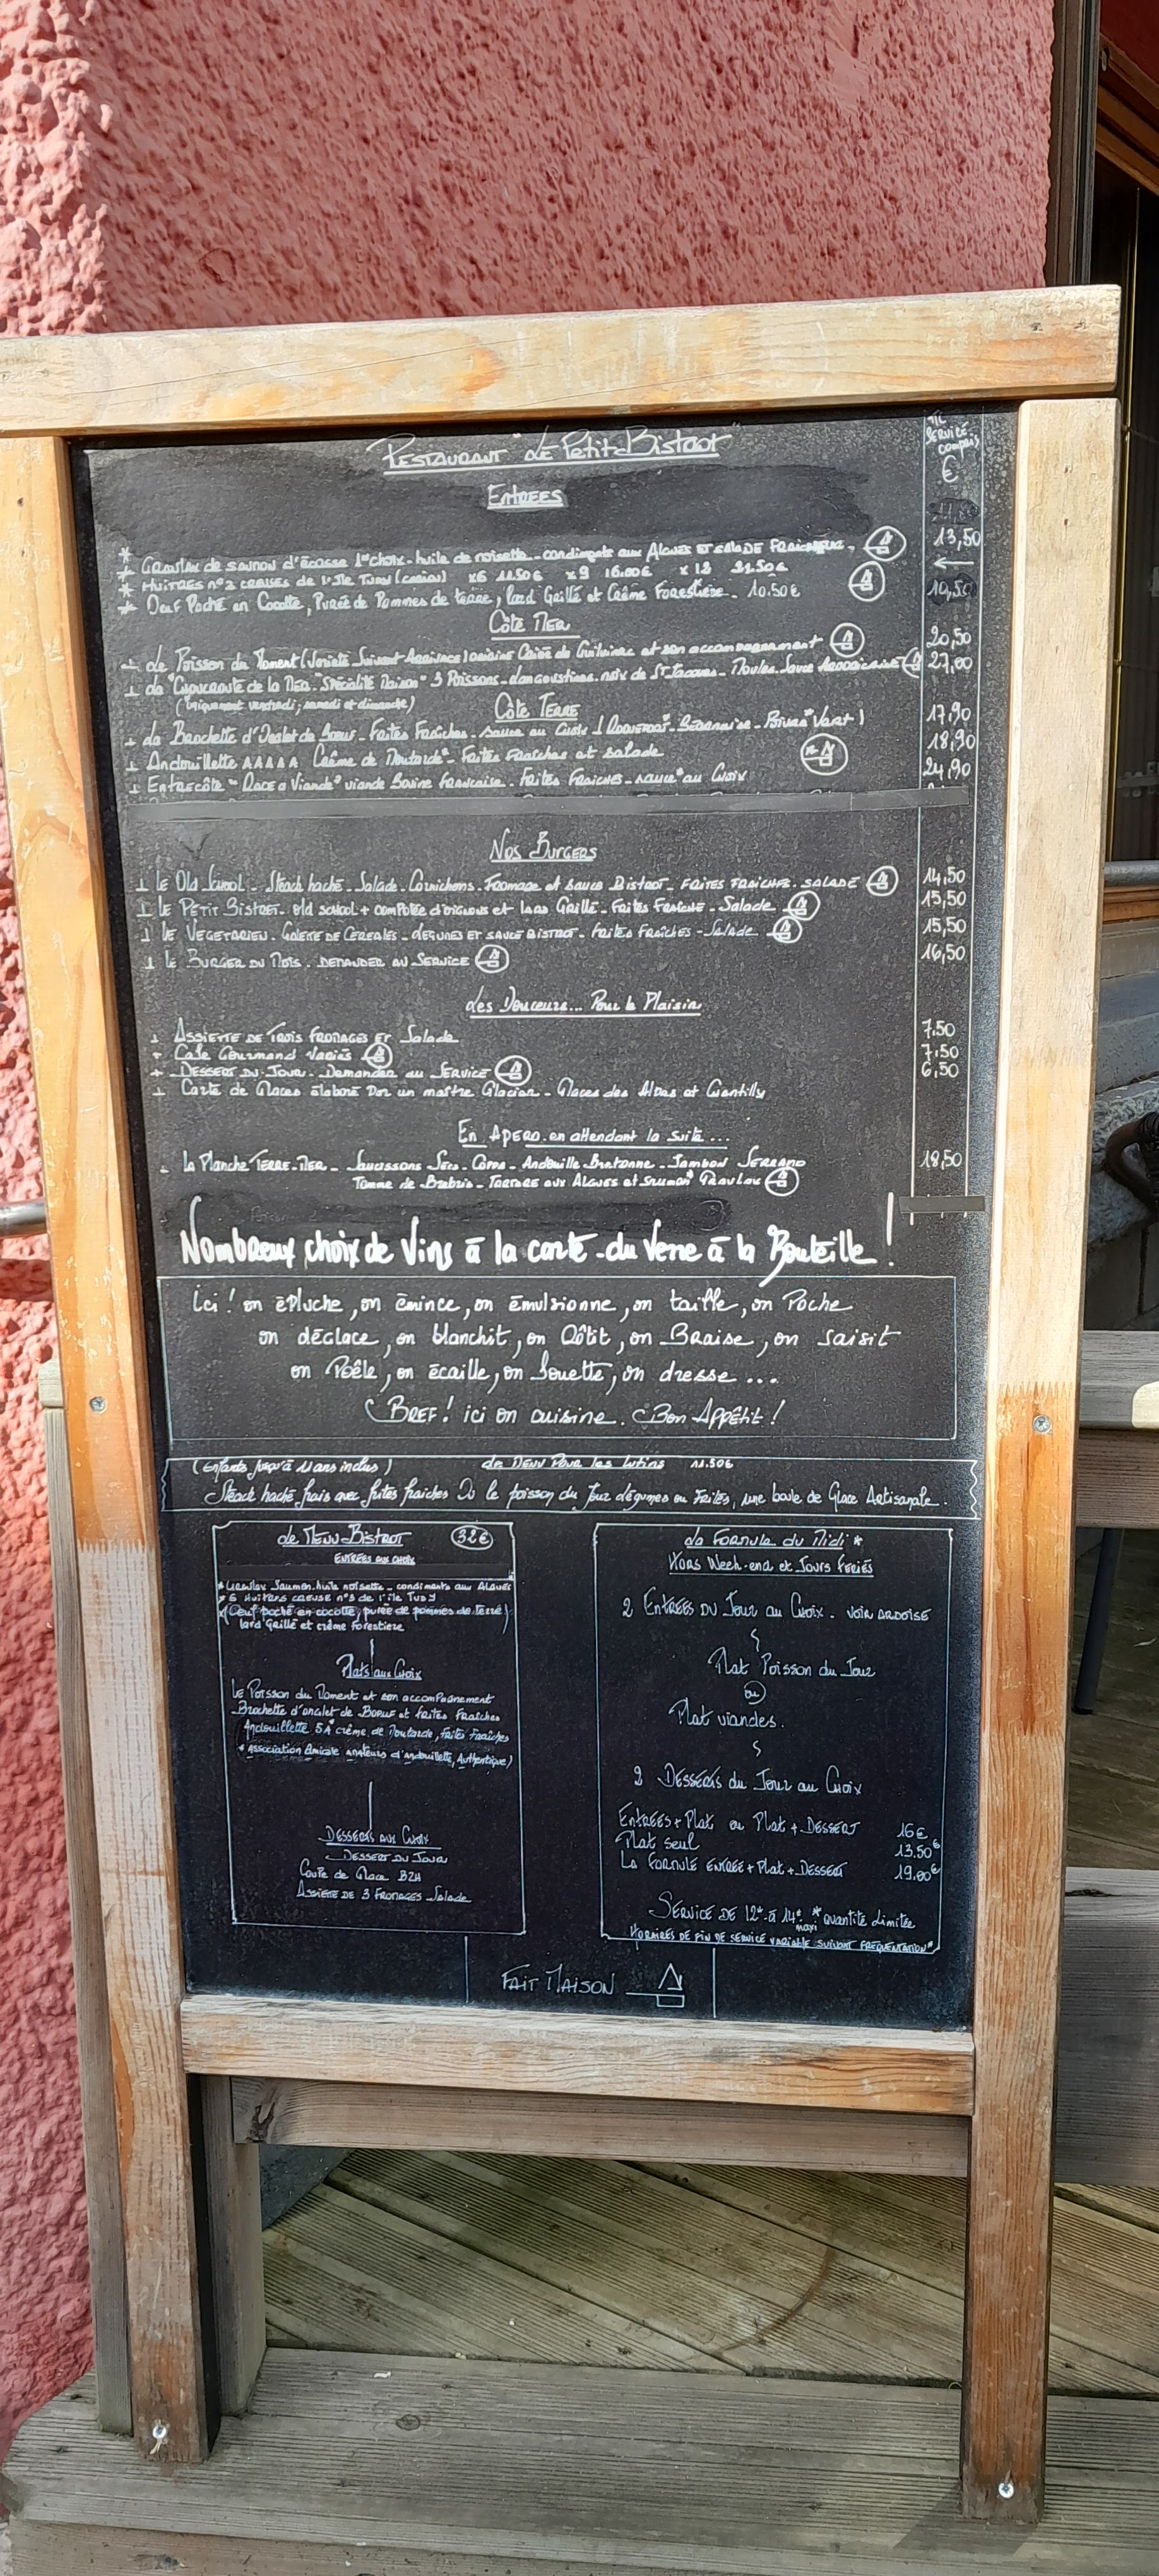 Restaurant "Le Petit Bistrot"
TTC SERVICE compris €
Entrees
* Gravlax de saumon d'écosse 1er choix - huile de noisette - condiments aux Algues ET salaDE FRAICHEUR. 13,50
* Huitres n°3 creuses de l'île Tudy (Carion) x6 11.50€ x9 16.00€ x12 21.50€ ←
* Oeuf Poché en Cocotte, Purée de Pommes de terre, lard Grillé et Crème Forestière - 10.50€ 10,50
Côté Mer
Le Poisson du Moment (Variété Suivant Arrivage) origine Criée du Guilvinec et son accompagnement 20,50
La "Choucroute de la Mer" "Spécialité Maison" 3 Poissons - langoustines - noix de St Jacques - Moules - Sauce 27,00
(Uniquement vendredi, samedi et dimanche)
Côté Terre
La Brochette d'Onglet de Boeuf - Frites Fraîches - sauce au Choix (Roquefort* - Béarnaise - Poivre* Vert) 17,90
Andouillette AAAAA Crème de Moutarde* - Frites Fraîches et salade 18,90
Entrecôte "Race à Viande" viande Bovine Française - Frites Fraîches - sauce* au Choix 24,90
Nos Burgers
Le Old School - Steack haché - Salade - Cornichons - Fromage et sauce Bistrot - FRITES FRAICHES - SALADE 14,50
Le Petit Bistrot - old school + compotée d'oignons et lard Grillé - Frites Fraîche - Salade 15,50
Le Végétarien - Galette de Céréales - Légumes et sauce Bistrot - Frites Fraîches - Salade 15,50
Le Burger du Mois - demander au Service 16,50
Les Douceurs... Pour le Plaisir
Assiette de Trois Fromages et Salade 7.50
Café Gourmand Variés 7.50
Dessert du Jour - Demander au Service 6,50
Carte de Glaces élaboré Par un maître Glacier - Glaces des Alpes et Chantilly
En Apero en attendant la suite...
La Planche Terre-Mer - Saucissons Secs - Coppa - Andouille Bretonne - Jambon Serrano 18,50
Tomme de Brebis - Tartare aux Algues et Saumon Gravlax
Nombreux choix de Vins à la carte - du Verre à la Bouteille !
Ici ! on épluche, on émince, on émulsionne, on taille, on Poche
on déglace, on blanchit, on Rôtit, on Braise, on saisit
on Poêle, on écaille, on fouette, on dresse...
Bref ! ici on cuisine. Bon Appétit !
(Enfants jusqu'à 11 ans inclus) Le Menu Pour les Lutins 11.50€
Steack haché frais avec frites fraiches Ou le poisson du Jour légumes ou Frites, une boule de Glace Artisanale.
Le Menu Bistrot 32€
Entrées aux choix
* Gravlax Saumon huile noisette - condiments aux Algues
* 6 Huitres creuse n°3 de l'île Tudy
* (Oeuf poché en cocotte, purée de pommes de terre)
lard Grillé et crème forestière
Plats aux Choix
Le Poisson du Moment et son accompagnement
Brochette d'onglet de Boeuf et Frites Fraîches
Andouillette 5A* crème de Moutarde, Frites Fraîches
(* Association Amicale amateurs d'andouillette, Authentique)
Desserts aux Choix
Dessert du Jour
Coupe de Glace BZH
Assiette de 3 Fromages Salade
La Formule du Midi *
Hors Week-end et Jours Feriés
2 Entrées du Jour au Choix - voir ardoise
Plat Poisson du Jour
ou
Plat viandes.
2 Desserts du Jour au Choix
Entrées + Plat ou Plat + Dessert 16€
Plat seul 13.50€
La Formule Entrée + Plat + Dessert 19,00€
Service de 12H à 14H maxi * quantité limitée
Horaires de fin de service variable suivant fréquentation*
Fait Maison